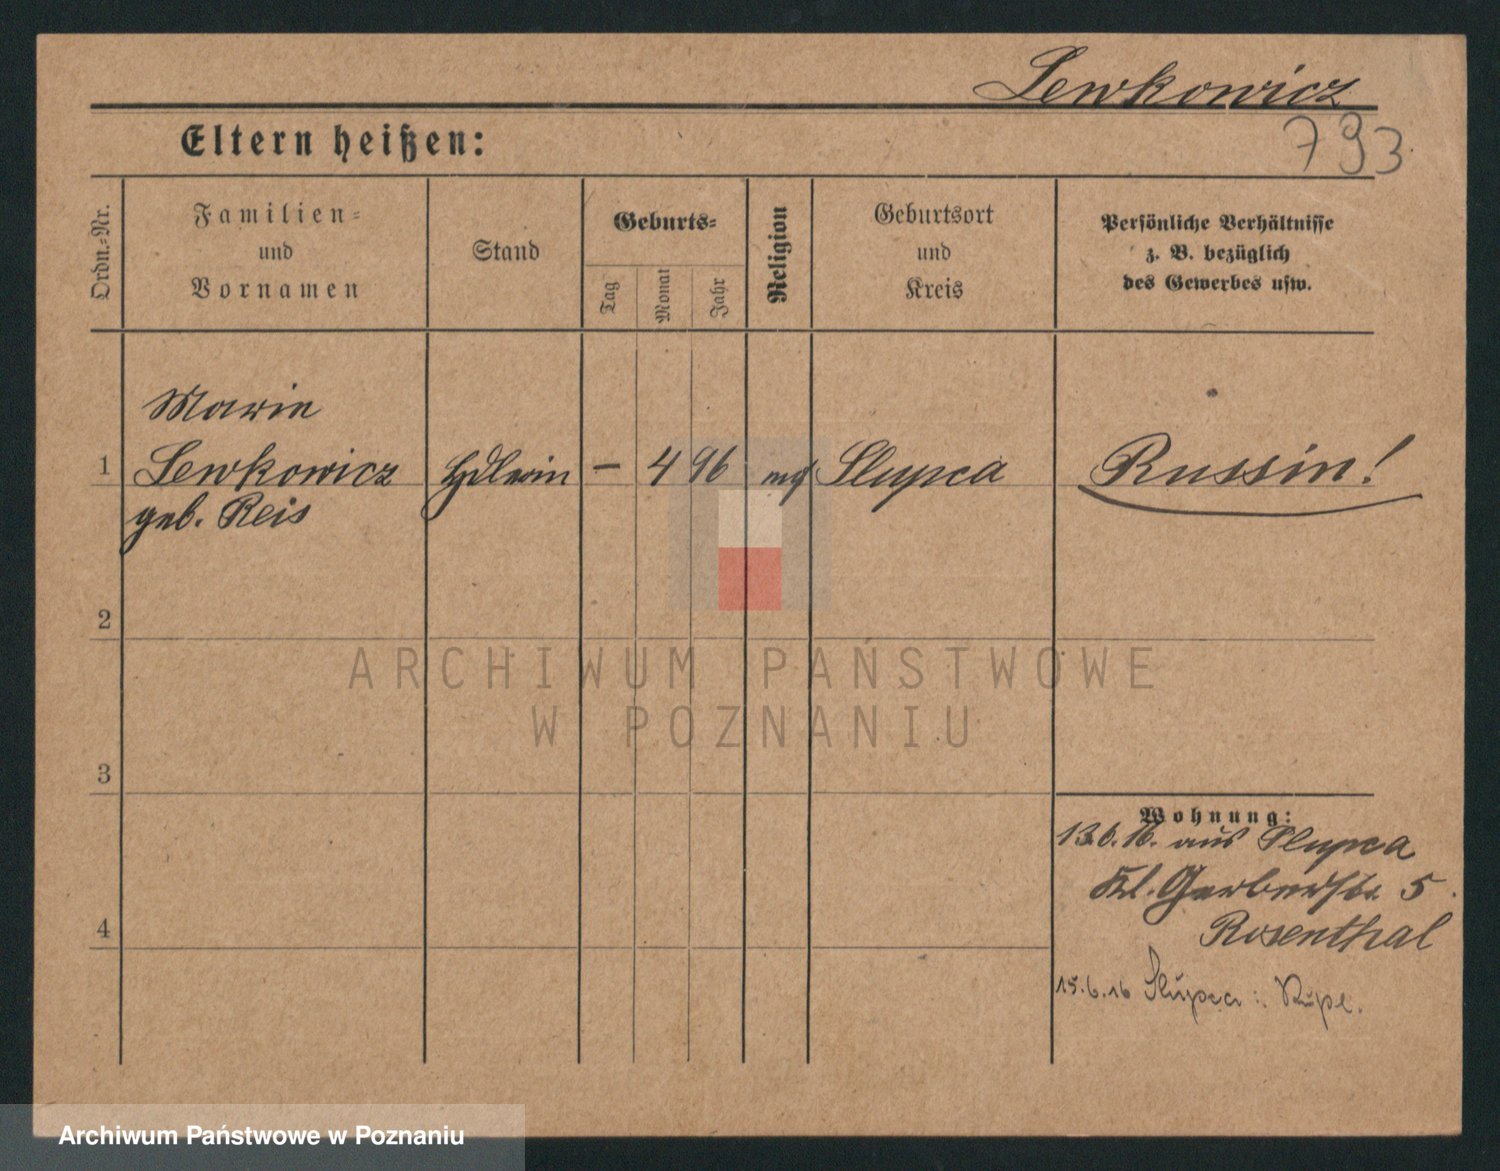 Lewkowicz
793
Eltern heißen:
Ordn.-Nr.
Familien-
und
Vornamen
Stand
Geburts-
Tag
Monat
Jahr
Religion
Geburtsort
und
Kreis
Persönliche Verhältnisse
z. B. bezüglich
des Gewerbes usw.
Marie
1 Lewkowicz Hdlerin — 4 96 Slupca Russin!
geb. Reis
2
3
4
Wohnung:
13.6.16. aus Slupca
Kl. Gerberstr. 5
Rosenthal
15.6.16 Slupca
ARCHIWUM PAŃSTWOWE
W POZNANIU
Archiwum Państwowe w Poznaniu